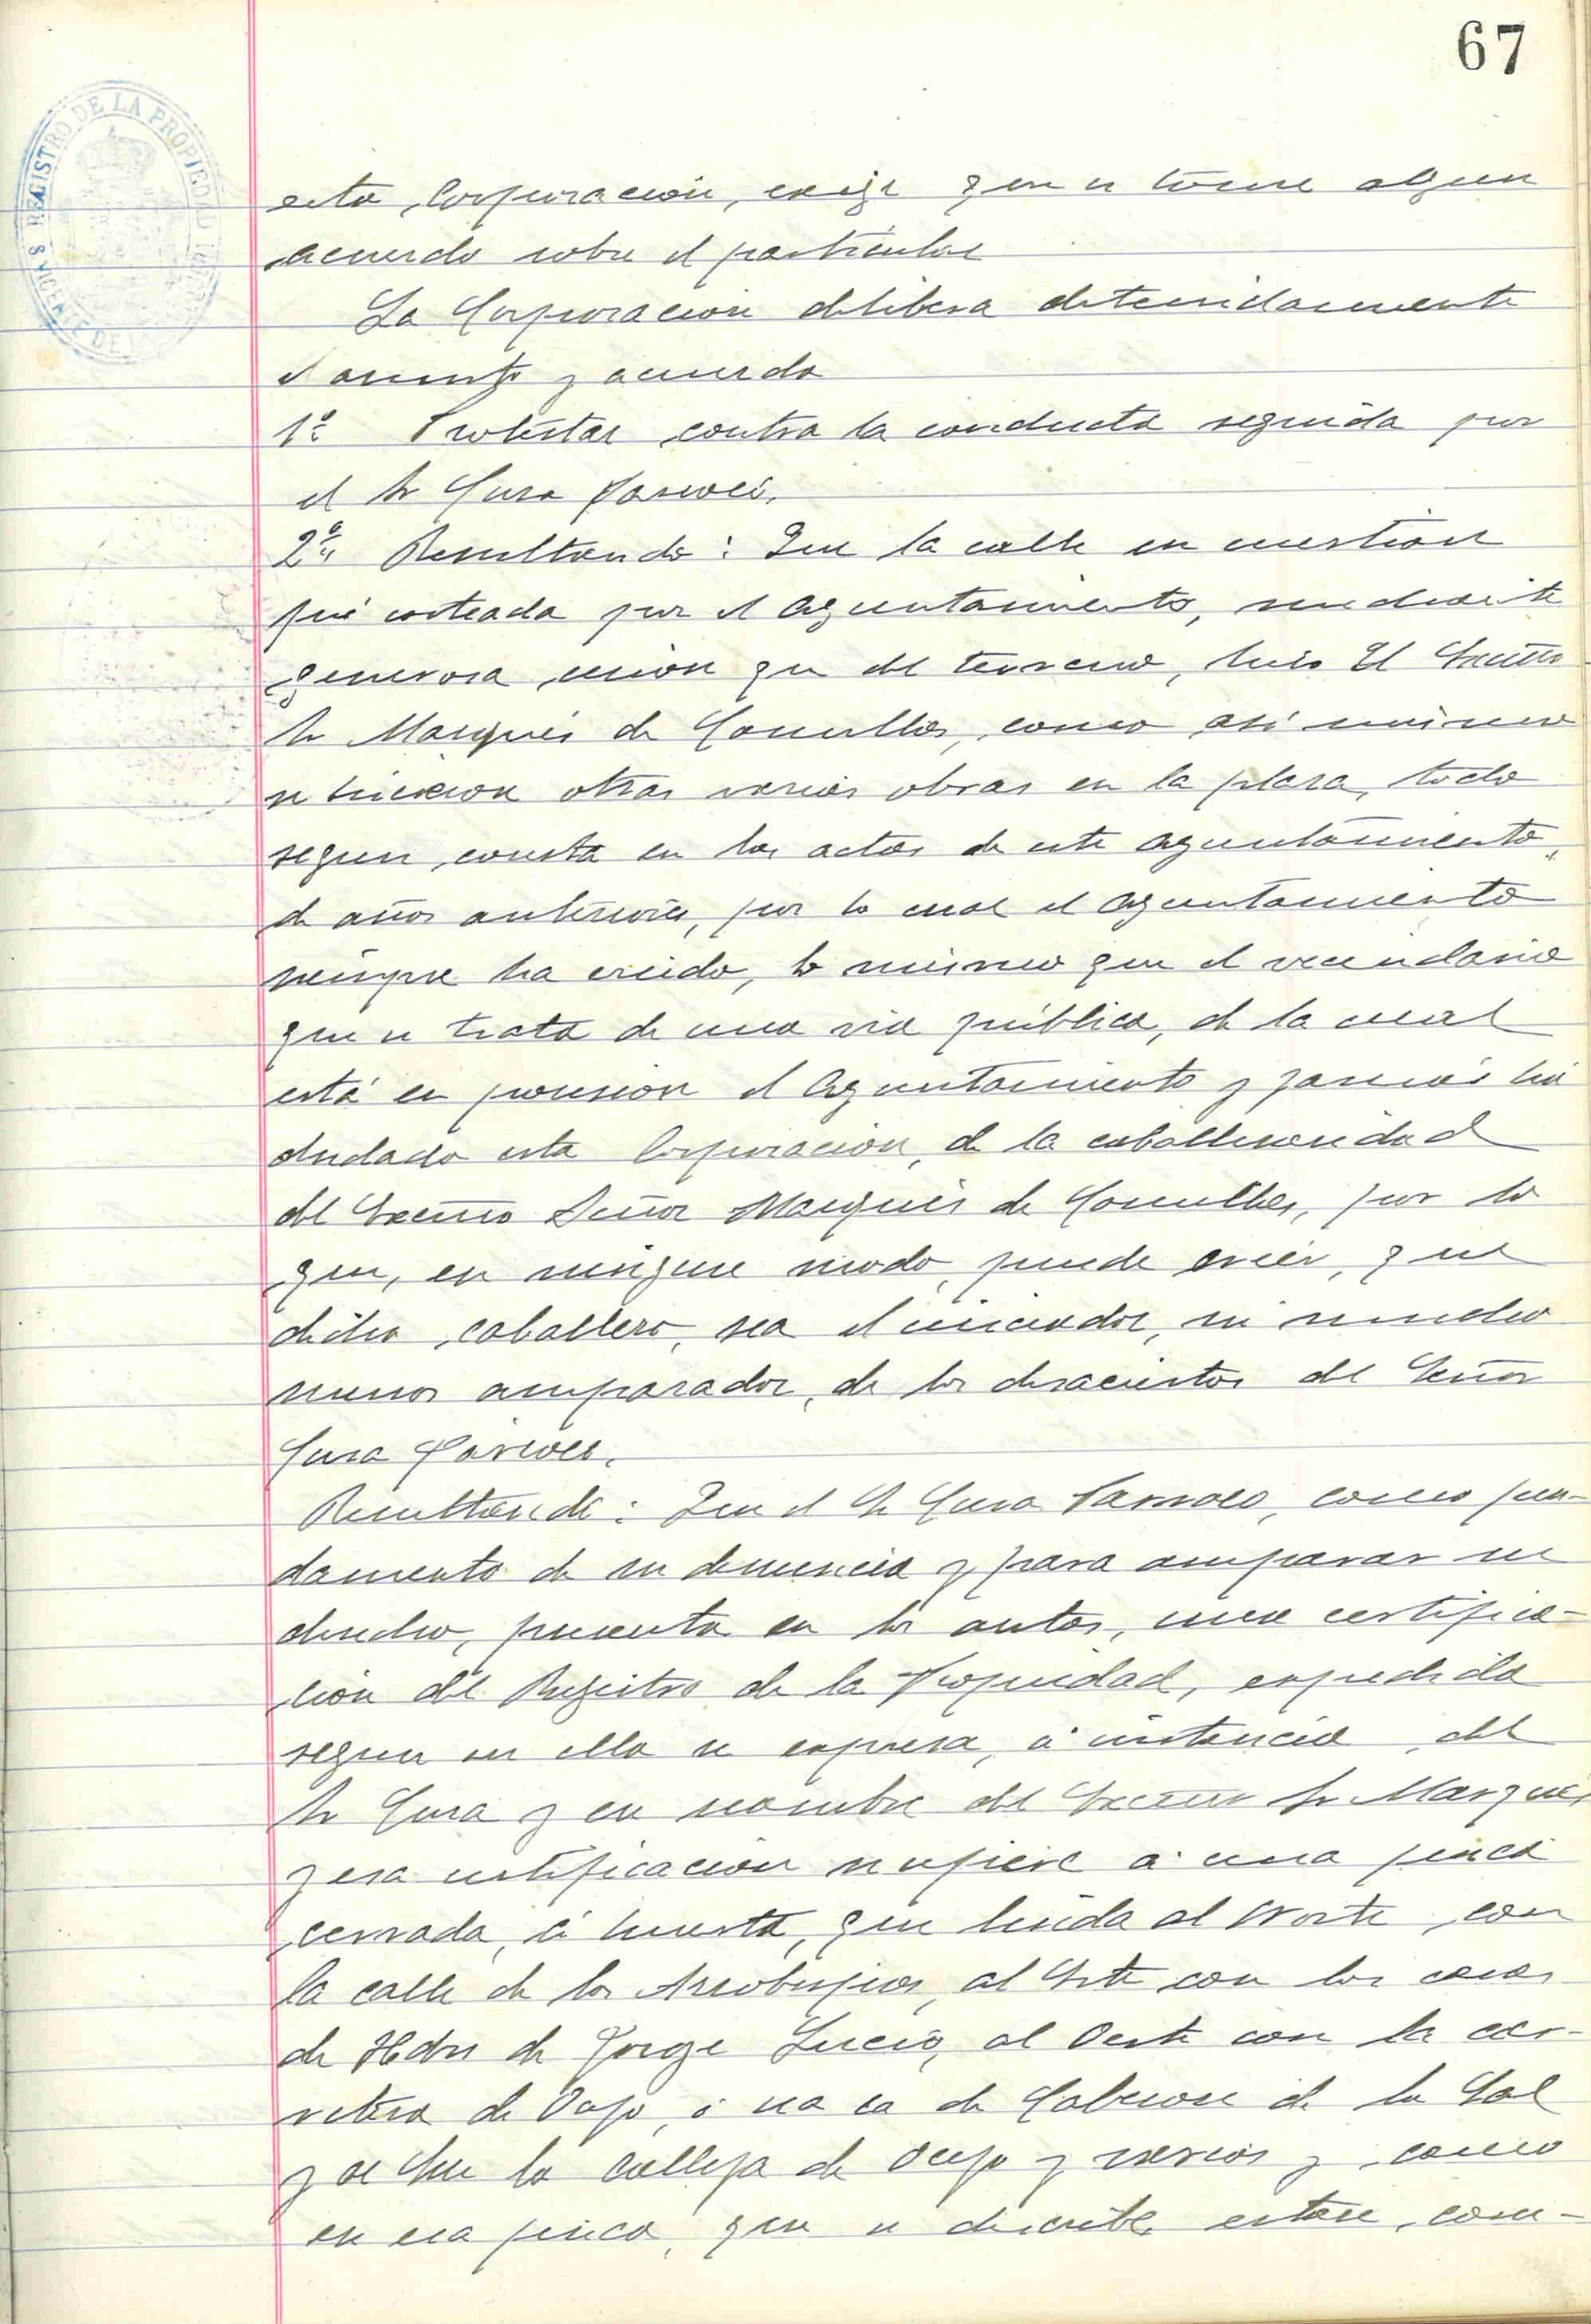 67
REGISTRO DE LA PROPIEDAD
S. VICENTE DE
esta Corporación, exige que se tome algun
acuerdo sobre el particular
La Corporacion delibera detenidamente
el asunto y acuerda
1º Protestar contra la conducta seguida por
el Sr Cura Parroco.
2º Resultando: Que la calle en cuestion
fué costeada por el Ayuntamiento, mediante
generosa cesion que del terreno, hizo El Excmo
Sr Marqués de Comillas, como asi mismo
se hicieron otras varias obras en la plaza, todo
segun consta en las actas de este Ayuntamiento,
de años anteriores, por lo cual el Ayuntamiento
siempre ha creido, lo mismo que el vecindario
que se trata de una via pública, de la cual
está en posesion el Ayuntamiento y jamás ha
dudado esta Corporacion, de la caballerosidad
del Excmo Señor Marqués de Comillas, por lo
que, en ningun modo, puede creer, que
dicho caballero, sea el iniciador, ni mucho
menos amparador, de los desaciertos del Señor
Cura Parroco.
Resultando: Que el Sr Cura Parroco, como fun-
damento de su denuncia y para amparar su
derecho, presenta en los autos, una certifica-
ción del Registro de la Propiedad, expedida
segun en ella se expresa, á instancia del
Sr Cura y en nombre del Excmo Sr Marqués
y esa certificacion se refiere á una finca
cerrada, á huerta, que linda al Norte con
la calle de los Arzobispos, al Este con las casas
de Hdros de Jorge Lucio, al Oeste con la car-
retera de Oejo, ó sea la de Cabezon de la Sal
y al Sur la calleja de Oejo y varios y como
en esa finca, que se describe, estan, com-